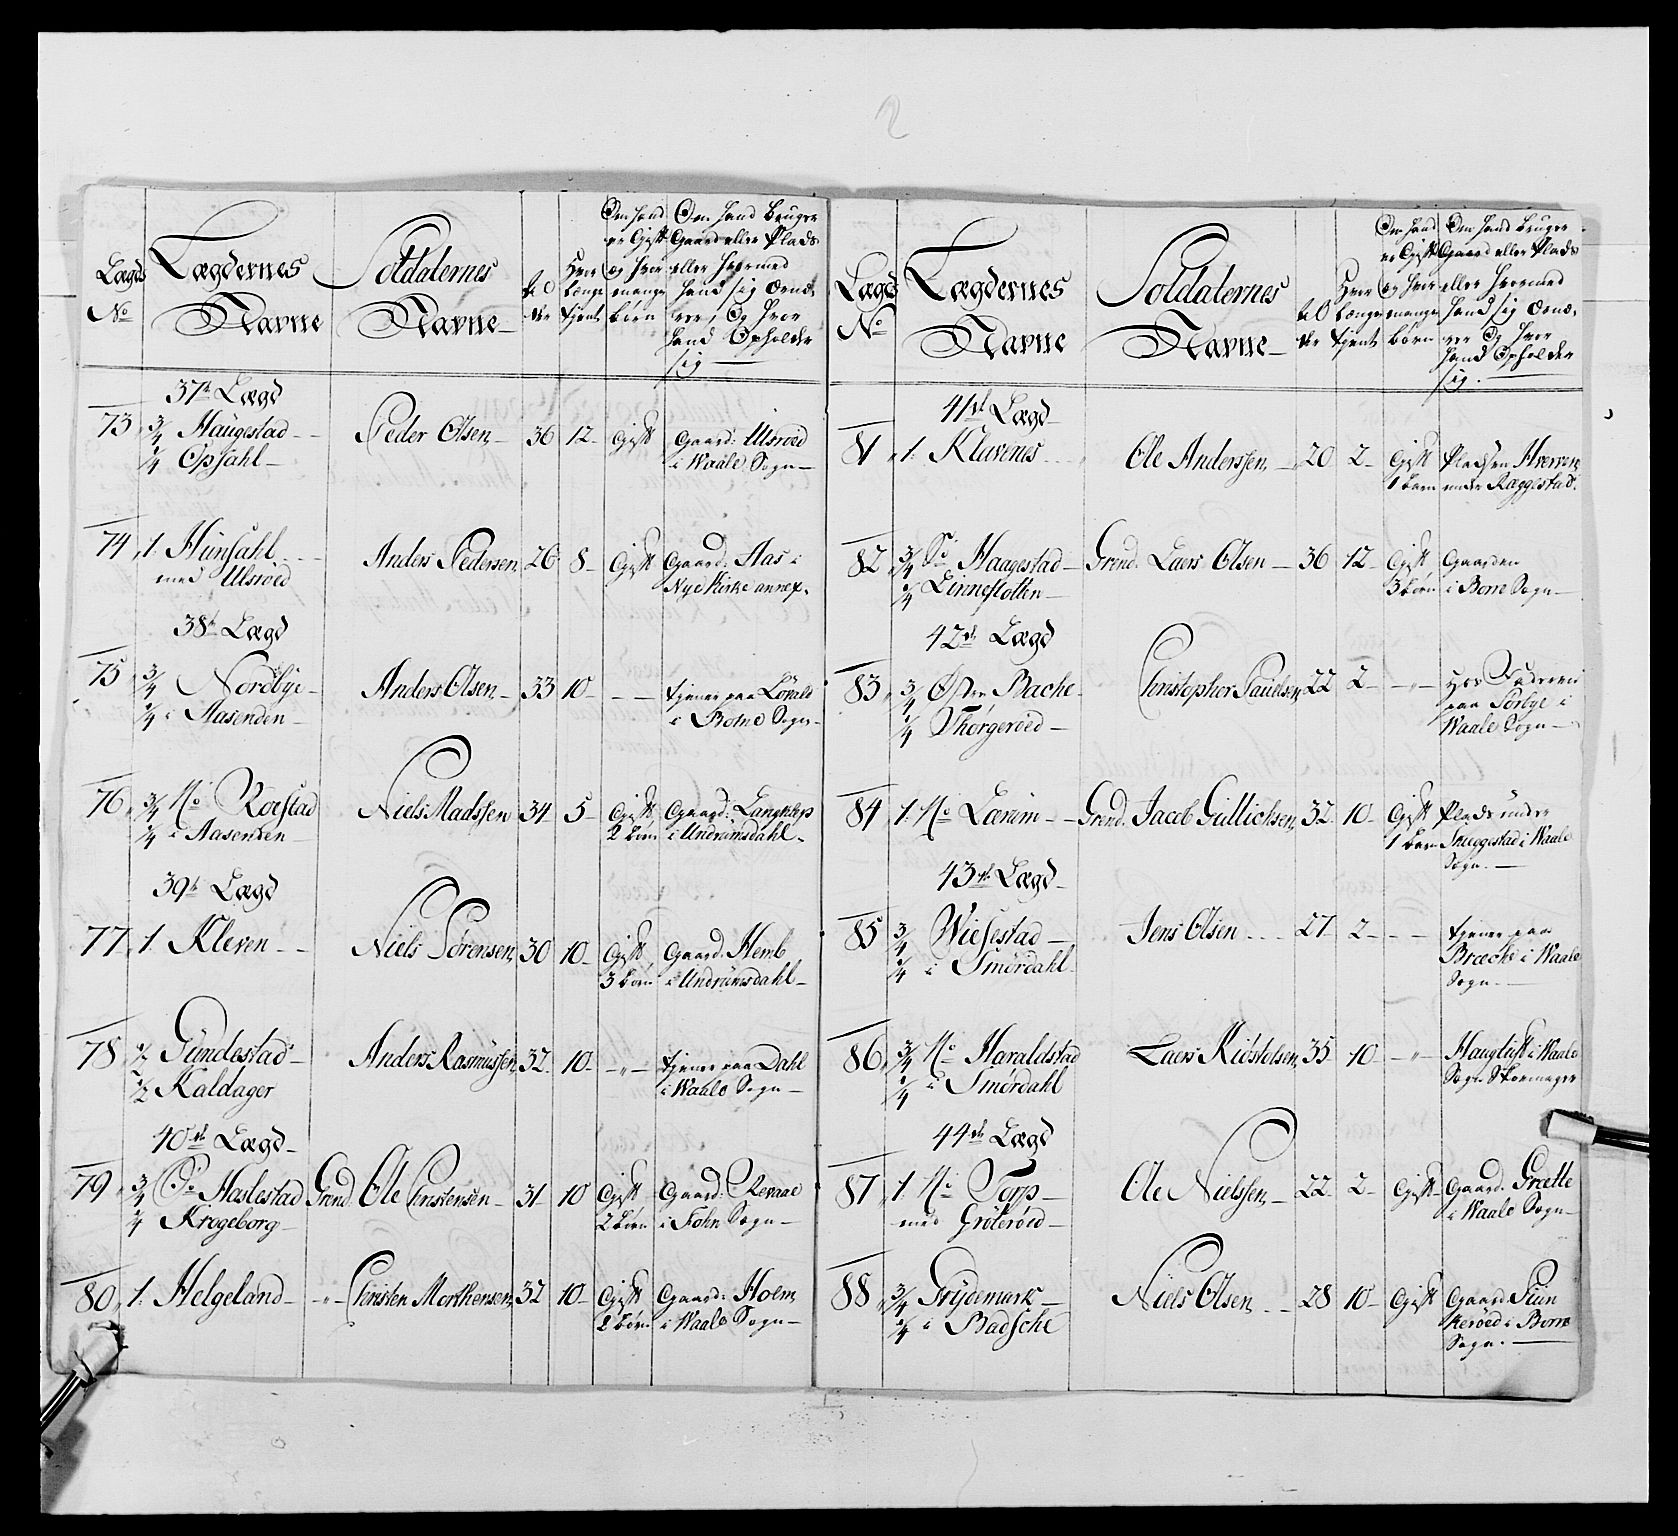 Lægds No
Lægdernes Navne
Soldaternes Navne
Hvor længe tient
Om hand er Gift og hvor mange børn
Om hand bruger Gaard eller Plads eller hvormed hand sig ernærer, Og hvor hand Opholder sig
37te Lægd
73 3/4 Haugestad 1/4 Opsahl Peder Olsen 36 12 Gift Gaard: Ulsroed i Waale Sogn
74 1. Hunsahl med Ulsroed Anders Pedersen 26 8 Gift Gaard: Aas i Nye Kirke annex.
38te Lægd
75 3/4 Nordbye 1/4 i Aasenden Anders Olsen 33 10 tjener paa i Botne Sogn
76 3/4 No Roestad 1/4 i Aasenden Niels Madssen 34 5 Gift 2 børn Gaard: i Undrumsdahl
39te Lægd
77 1. Kleven Niels Sørensen 30 10 Gift 3 børn Gaard: Hemb i Undrumsdahl
78 1/2 Gundestad 1/2 Kaldager Anders Rasmussen 32 10 tjener paa Dahl i Waale Sogn
40de Lægd
79 3/4 So Haslestad 1/4 Krogeborg Grend. Ole Christensen 31 10 Gift 2 børn Gaard: Revaae i Fohn Sogn
80 1. Helgeland Christen Morthensen 32 10 Gift 2 børn Gaard: Holm i Waale Sogn
Lægds No
Lægdernes Navne
Soldaternes Navne
Hvor længe tient
Om hand er Gift og hvor mange børn
Om hand bruger Gaard eller Plads eller hvormed hand sig ernærer Og hvor hand Opholder sig.
41de Lægd
81 1. Klavenes Ole Anderssen 20 2 Gift 1 barn Pladsen under Raggestad.
82 3/4 So Haagestad 1/4 Linnestotten Grend. Laers Olsen 36 12 Gift 3 børn Gaarden i Borre Sogn
42de Lægd
83 3/4 Østre Bache 1/4 Thorgeroed Christopher Paulsen 22 2 Hos Faderen paa Sørbye i Waale Sogn
84 1. No Lærum Grend. Jacob Gullichsen 32 10 Gift 1 barn Plads under Snuggestad i Waale Sogn.
43de Lægd
85 3/4 Wiesestad 1/4 i Smørdahl Jens Olsen 27 2 tjener paa Bræche i Waale Sogn.
86 3/4 No Haraldstad 1/4 i Smørdahl Laers Kiøstelsen 35 10 i Waale Sogn Skoemager
44de Lægd
87 1. No Torp med Grøteroed Ole Nielssen 22 2 Gift Gaard: Grette i Waale Sogn
88 3/4 Frydemark 1/4 i Badsche Niels Olsen 28 10 Gift Gaard i Borre Sogn.